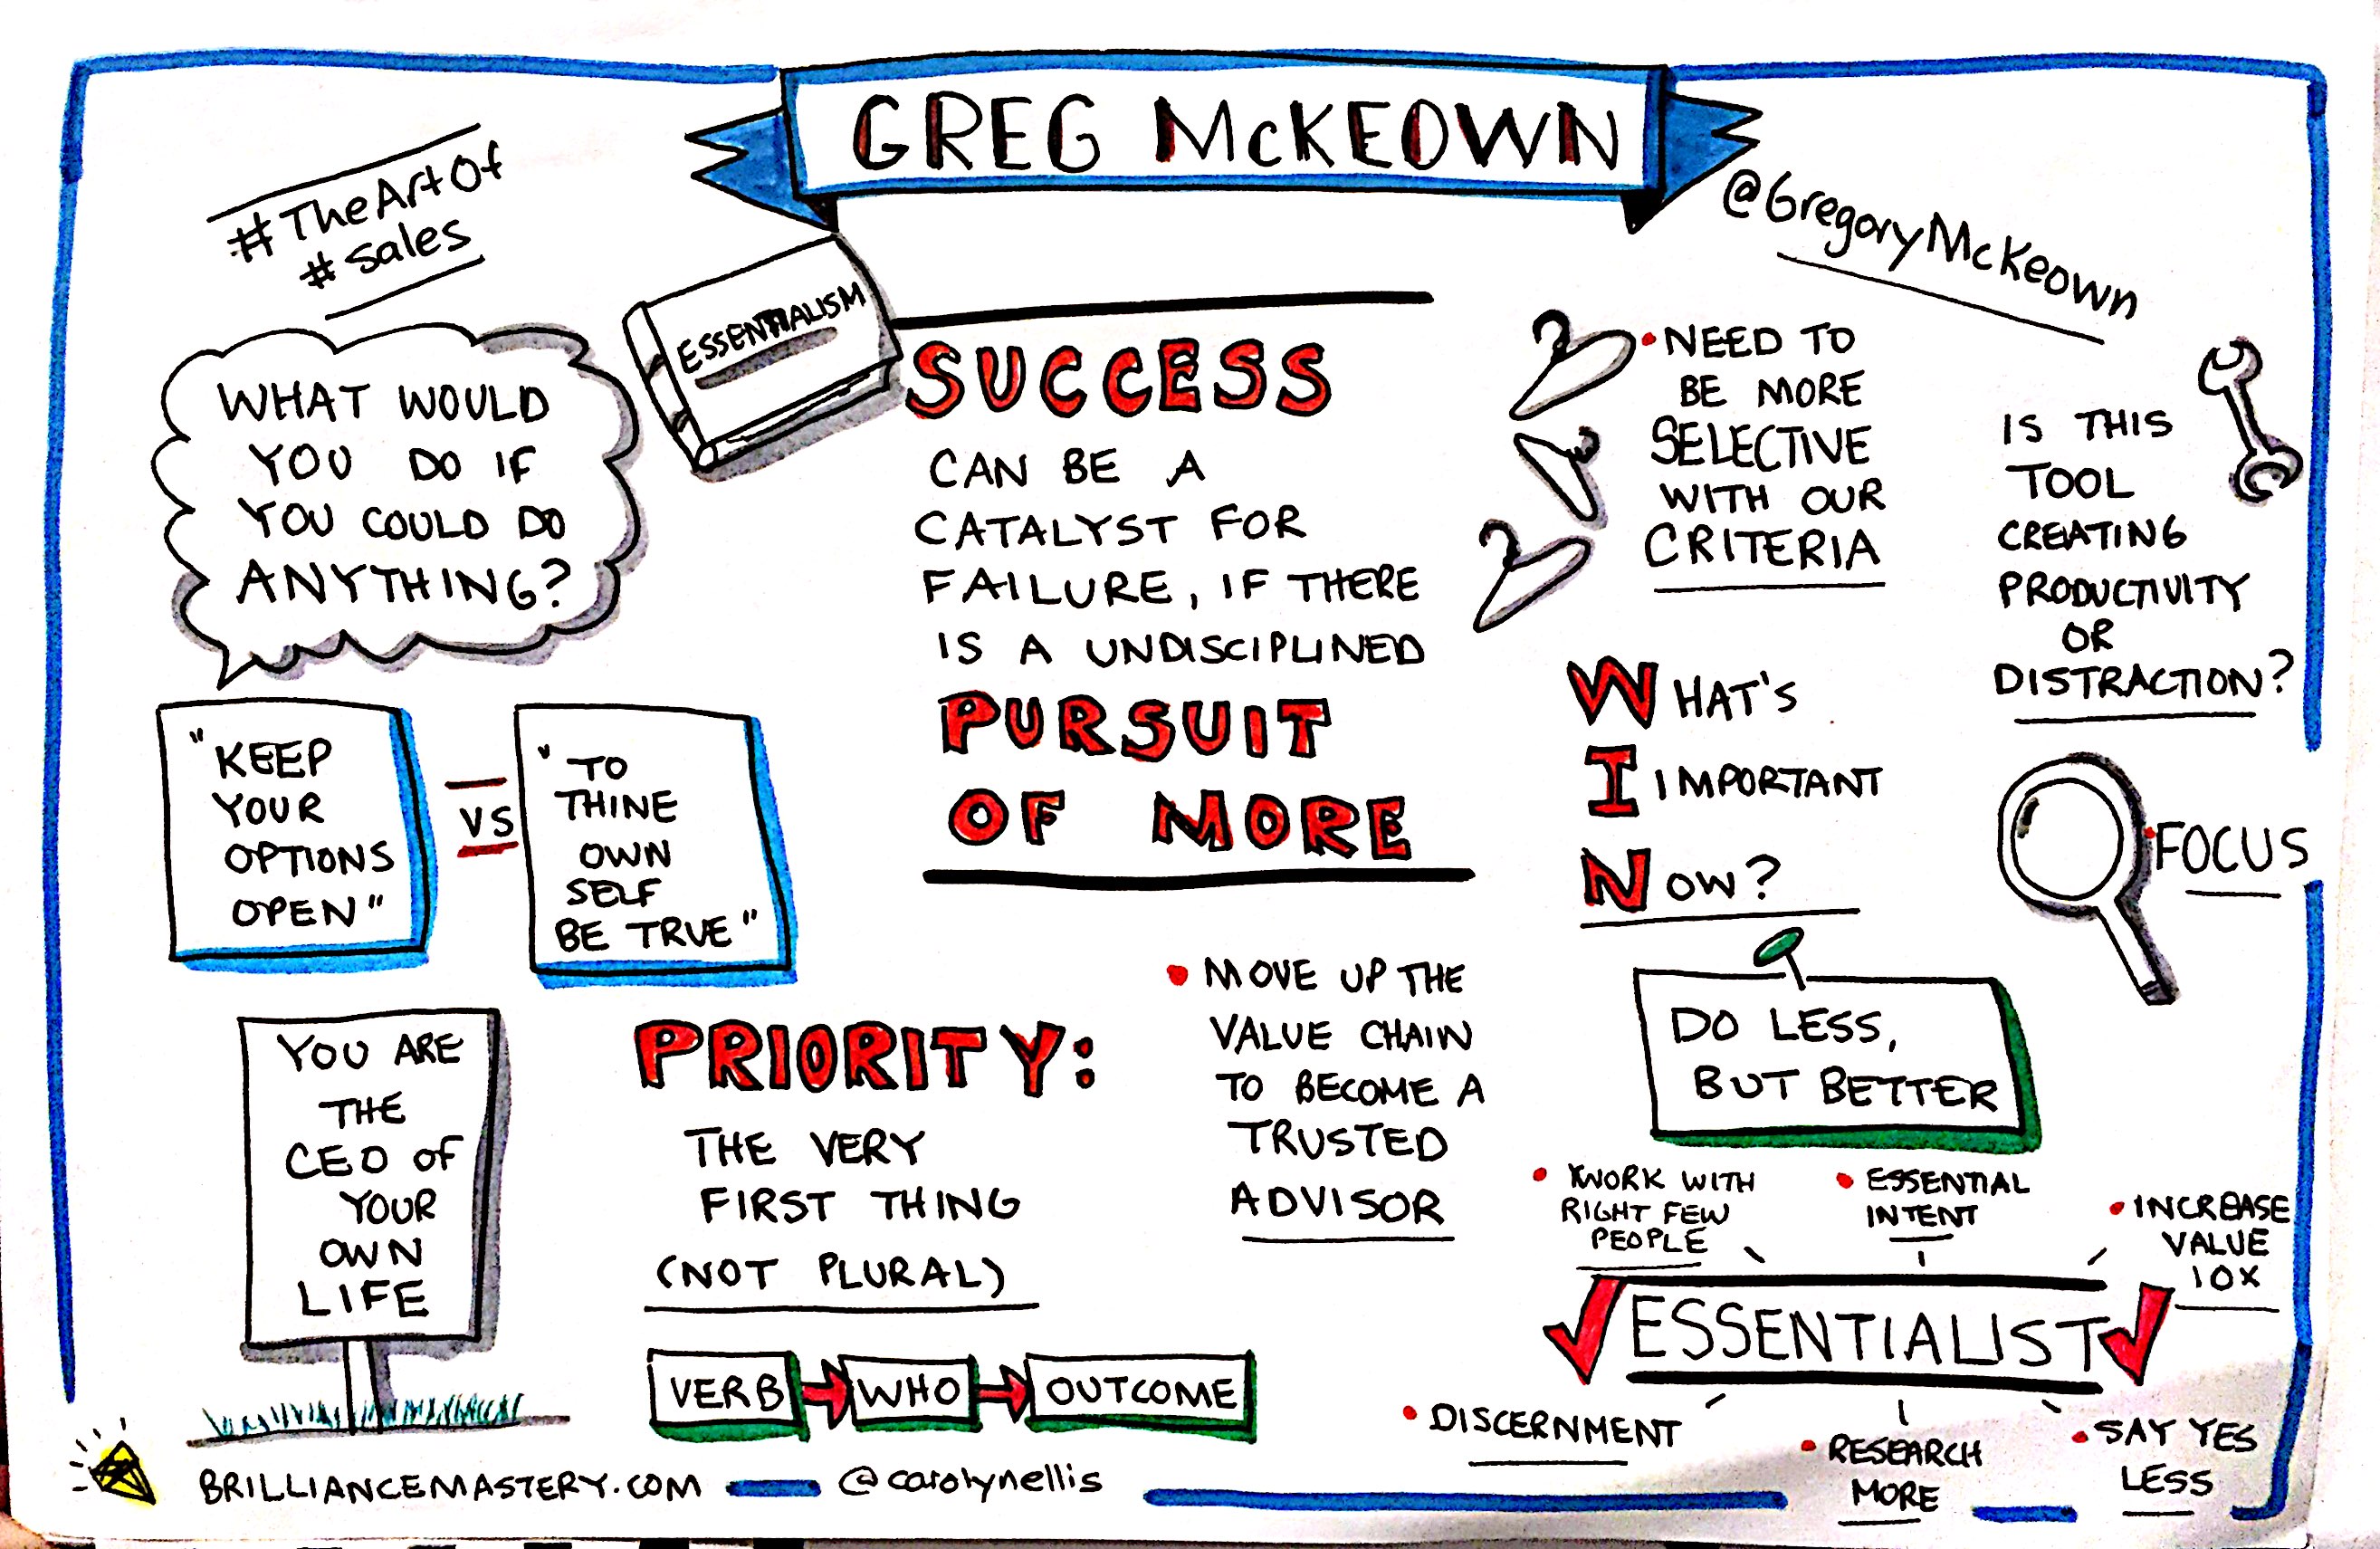 GREG McKEOWN
#TheArtOf
#sales
@GregoryMcKeown
ESSENTIALISM
WHAT WOULD
YOU DO IF
YOU COULD DO
ANYTHING?
SUCCESS
CAN BE A
CATALYST FOR
FAILURE, IF THERE
IS A UNDISCIPLINED
PURSUIT
OF MORE
• NEED TO
BE MORE
SELECTIVE
WITH OUR
CRITERIA
IS THIS
TOOL
CREATING
PRODUCTIVITY
OR
DISTRACTION?
"KEEP
YOUR
OPTIONS
OPEN"
VS
"TO
THINE
OWN
SELF
BE TRUE"
WHAT'S
IIMPORTANT
NOW?
• FOCUS
YOU ARE
THE
CEO OF
YOUR
OWN
LIFE
PRIORITY:
THE VERY
FIRST THING
(NOT PLURAL)
• MOVE UP THE
VALUE CHAIN
TO BECOME A
TRUSTED
ADVISOR
DO LESS,
BUT BETTER
VERB
WHO
OUTCOME
• WORK WITH
RIGHT FEW
PEOPLE
• ESSENTIAL
INTENT
• INCREASE
VALUE
10X
ESSENTIALIST
• DISCERNMENT
• RESEARCH
MORE
• SAY YES
LESS
BRILLIANCEMASTERY.COM
@carolynellis